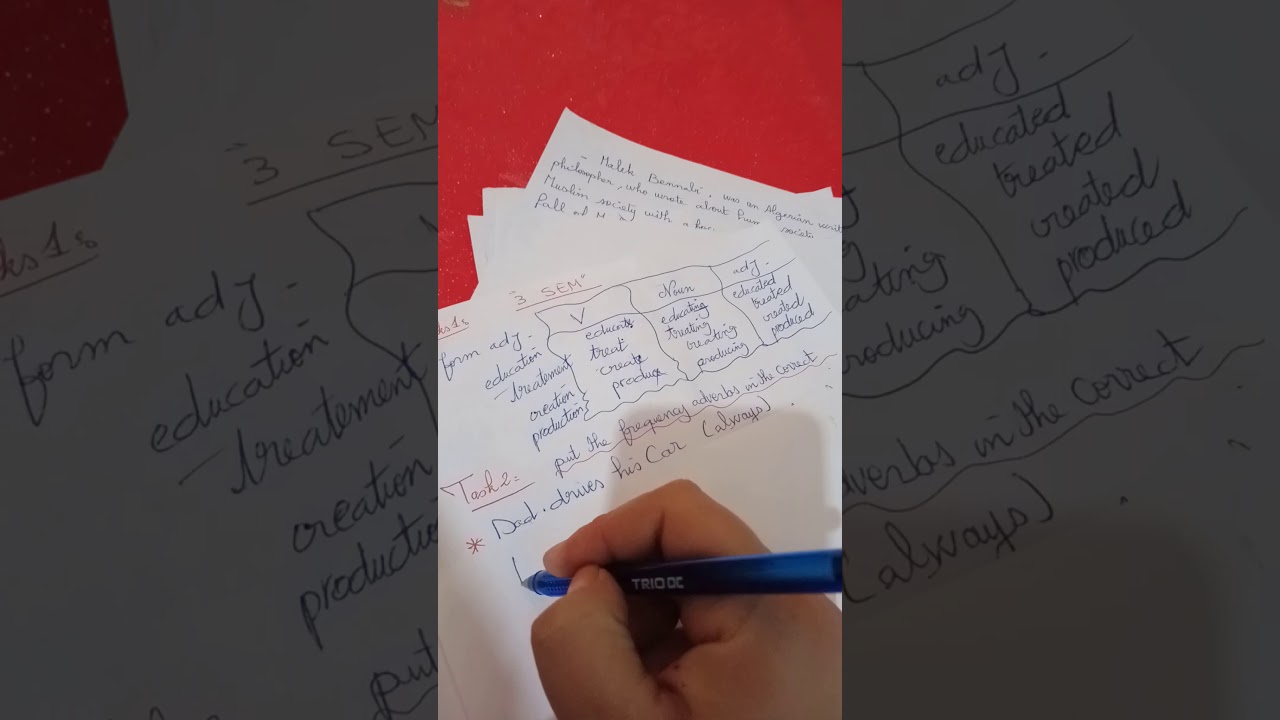 - Malek Bennabi. was an Algerian
philosopher, who wrote about
Muslim society with a
"3 SEM"
ks 1:
form adj -
V
Noun
adj -
education
educate
educating
educated
treatement
treat
treating
treated
creation
create
creating
created
production
produce
producing
produced
Task 2:
put the frequency adverbs in the correct
* Dad. drives his Car (always).
TRIO DC